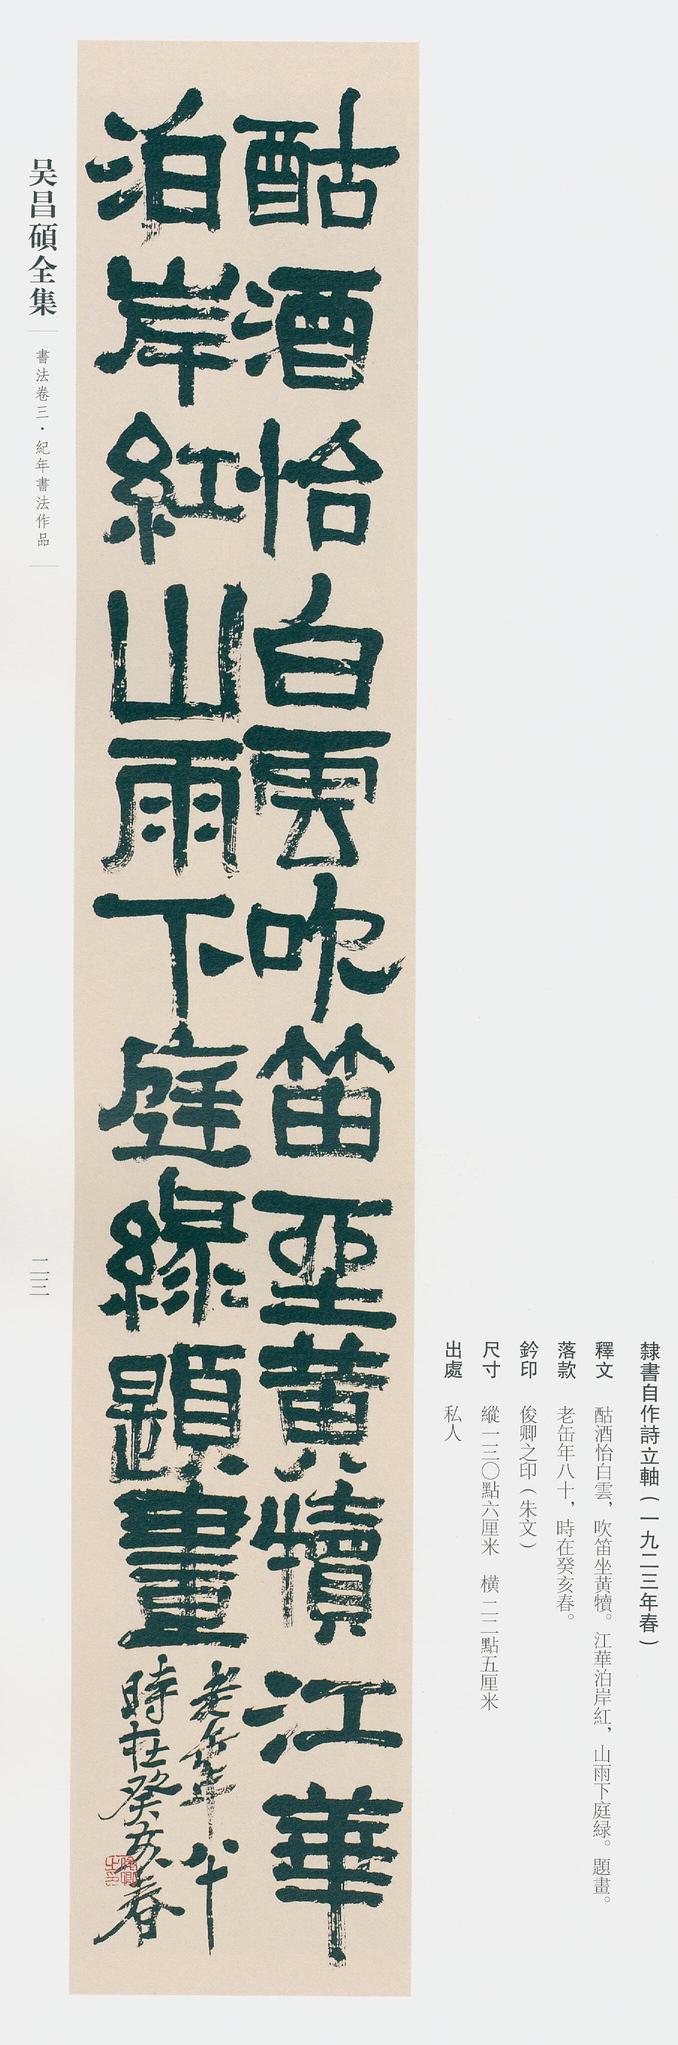 隸書自作詩立軸（一九二三年春）
釋文　酤酒怡白雲，吹笛坐黃犢。江華泊岸紅，山雨下庭緑。題畫。
落款　老缶年八十，時在癸亥春。
鈐印　俊卿之印（朱文）
尺寸　縱一三〇點六厘米　橫二二點五厘米
出處　私人
酤酒怡白雲吹笛坐黃犢江華
泊岸紅山雨下庭緑題畫
老缶年八十
時在癸亥春
俊卿之印
吴昌碩全集
書法卷三·紀年書法作品
二三